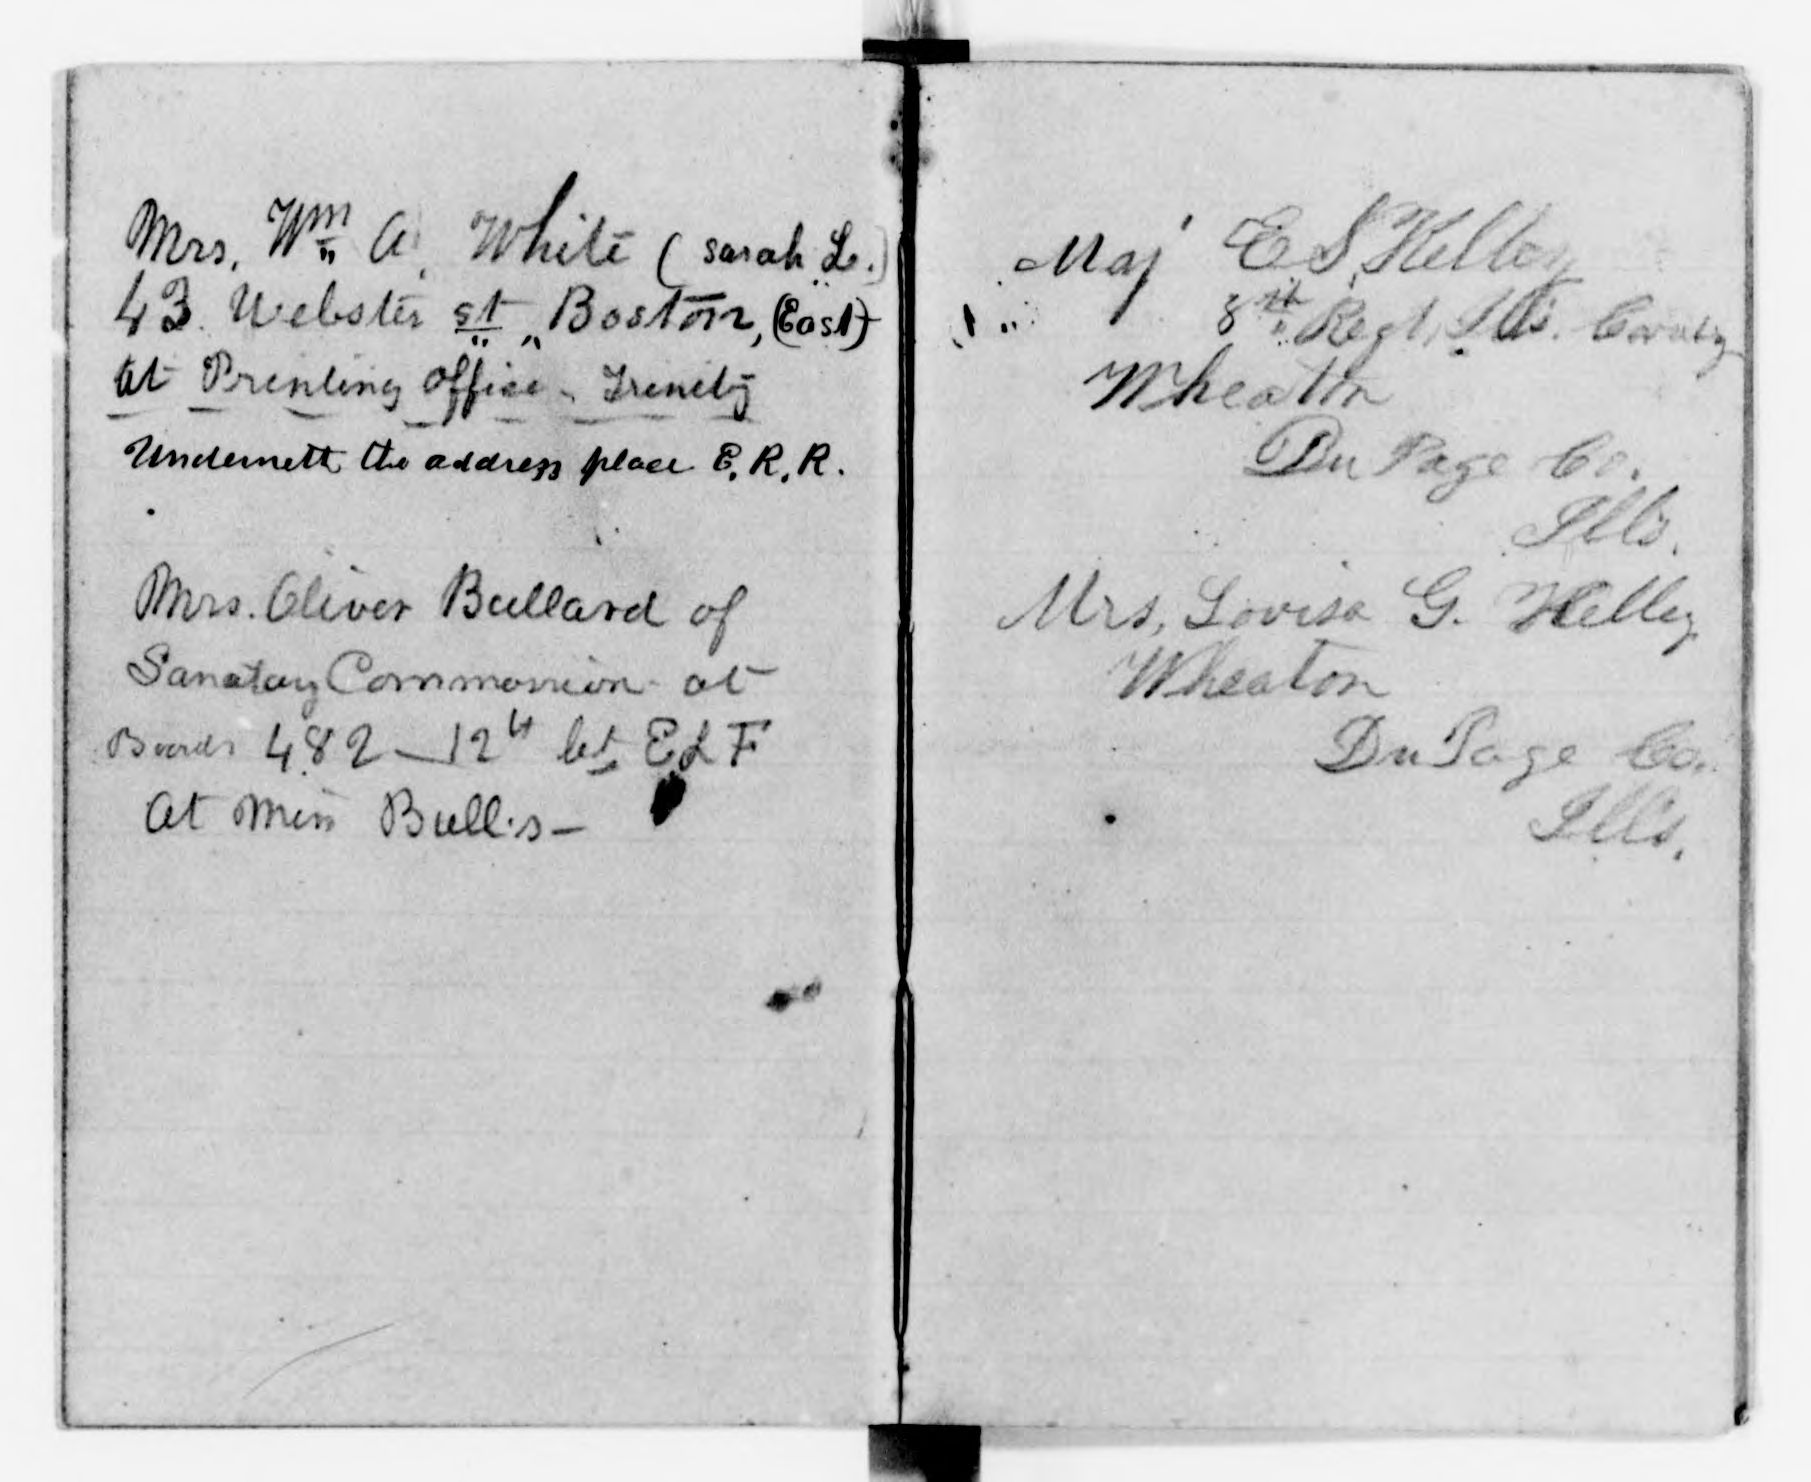 Mrs. Wm A. White (Sarah L.)
43 Webster st, Boston, (East)
At Printing Office - Trinity
Underneth the address place E. R. R.
Mrs. Oliver Bullard of
Sanatay Commission at
Boards 482 - 12th bt E & F
At Miss Bull's -
Maj E S Kelley
8th Regt, Ills. Cavalry
Wheaton
Du Page Co.
Ills.
Mrs. Lovisa G. Kelley
Wheaton
Du Page Co.
Ills.